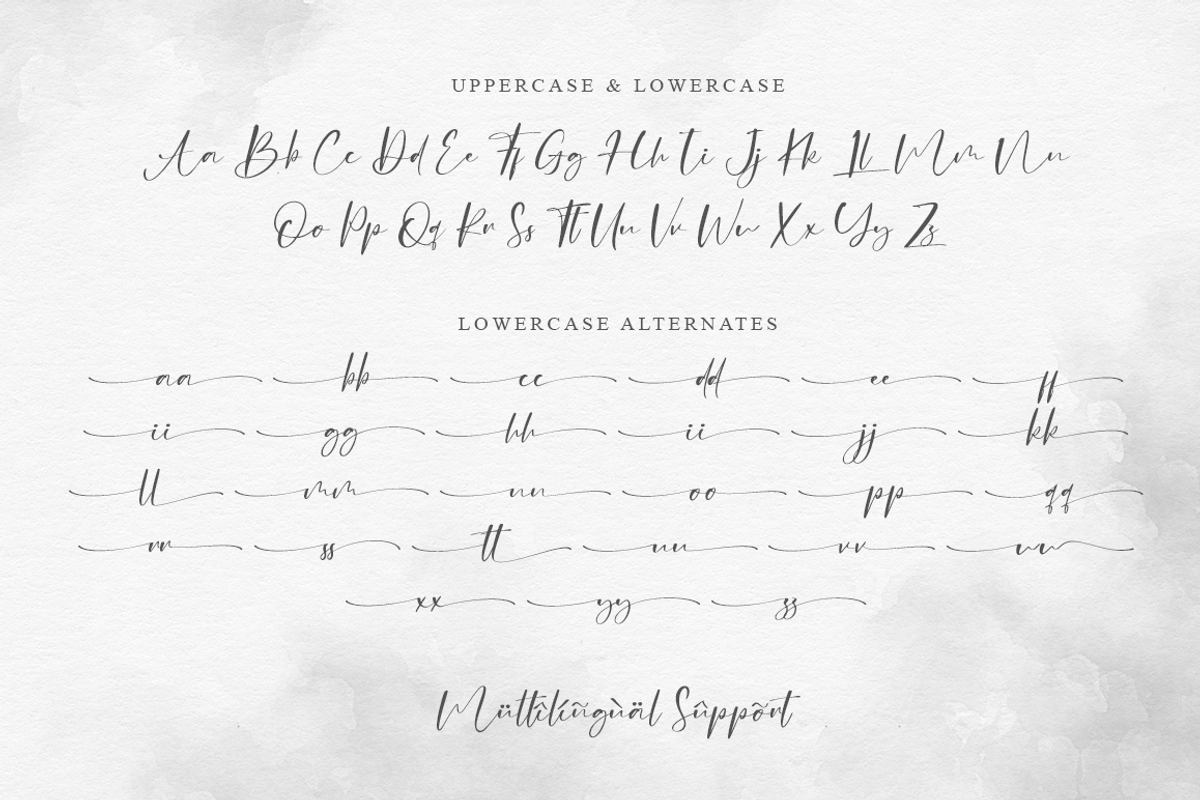 UPPERCASE & LOWERCASE
Aa Bb Cc Dd Ee Ff Gg Hh Ii Jj Kk Ll Mm Nn
Oo Pp Qq Rr Ss Tt Uu Vv Ww Xx Yy Zz
LOWERCASE ALTERNATES
aa bb cc dd ee ff
ii gg hh ii jj kk
ll mm nn oo pp qq
rr ss tt uu vv ww
xx yy zz
Müttîlíñgùäl Sûppõrt